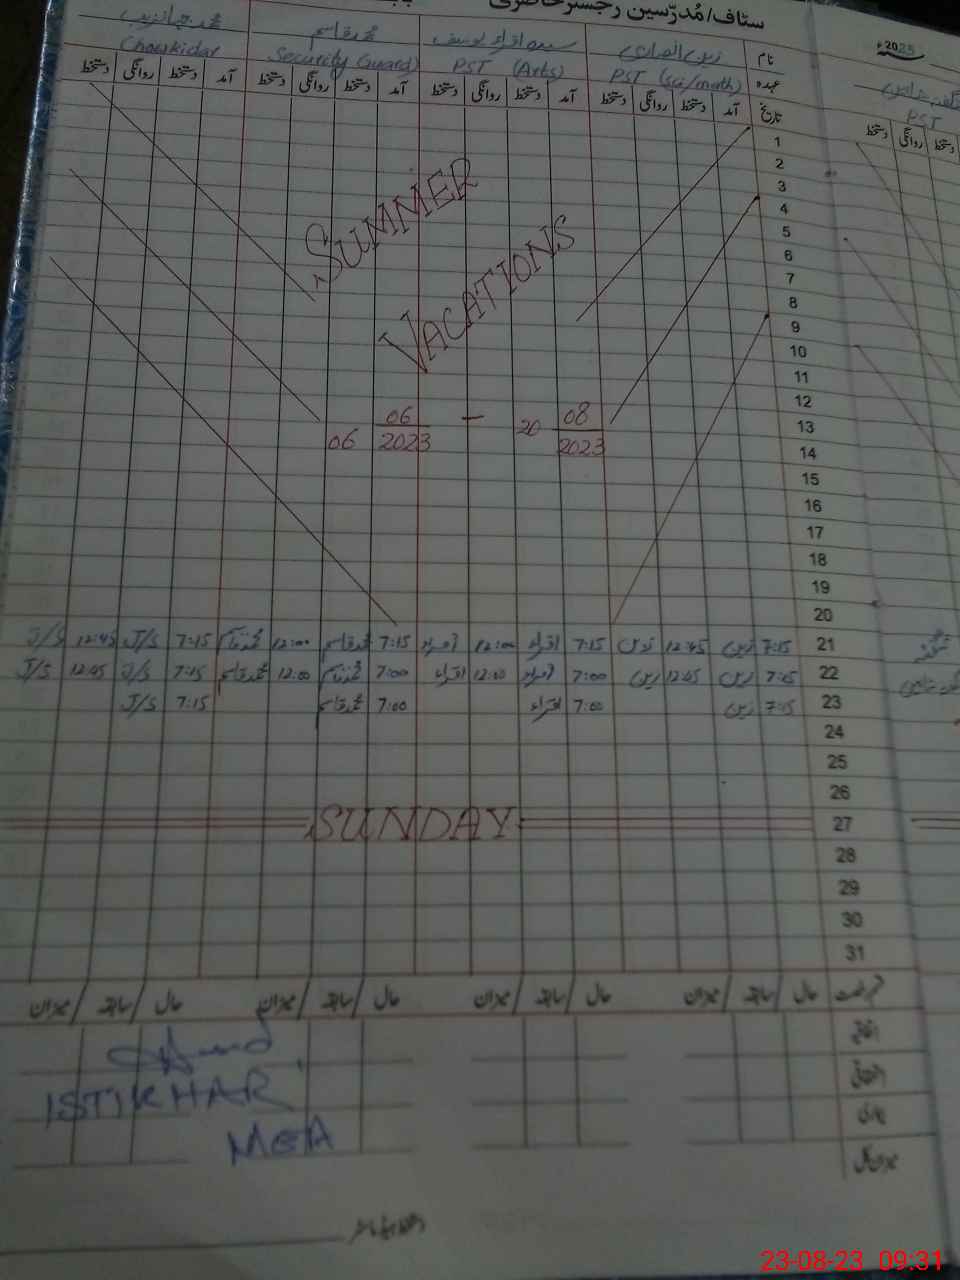 سٹاف/مُدرّسین رجسٹر حاضری
2023ء
نام محمد قاسم
عہدہ PST (Sci/math) PST (Arts) Security Guard Chowkidar
PST
تاریخ آمد دستخط روانگی دستخط آمد دستخط روانگی دستخط آمد دستخط روانگی دستخط آمد دستخط روانگی دستخط
دستخط روانگی دستخط
1
2
3
4
5
6
7
8
9
10
11
12
13
14
15
16
17
18
19
20
SUMMER
VACATIONS
06 06/2023 — 20 08/2023
21 7:15 زین 12:45 زین 7:15 اقراء 12:00 اقراء 7:15 محمد قاسم 12:00 محمد قاسم 7:15 J/S 12:45 J/S
22 7:15 زین 12:45 زین 7:00 اقراء 12:00 اقراء 7:00 محمد قاسم 12:00 محمد قاسم 7:15 J/S 12:45 J/S
23 7:15 زین 7:00 اقراء 7:00 محمد قاسم 7:15 J/S
24
25
26
27 SUNDAY
28
29
30
31
حال / سابقہ / میزان حال / سابقہ / میزان حال / سابقہ / میزان حال / سابقہ / میزان
اتفاقیہ
بیماری
میزان کل
ISTIKHAR
MEA
23-08-23 09:31